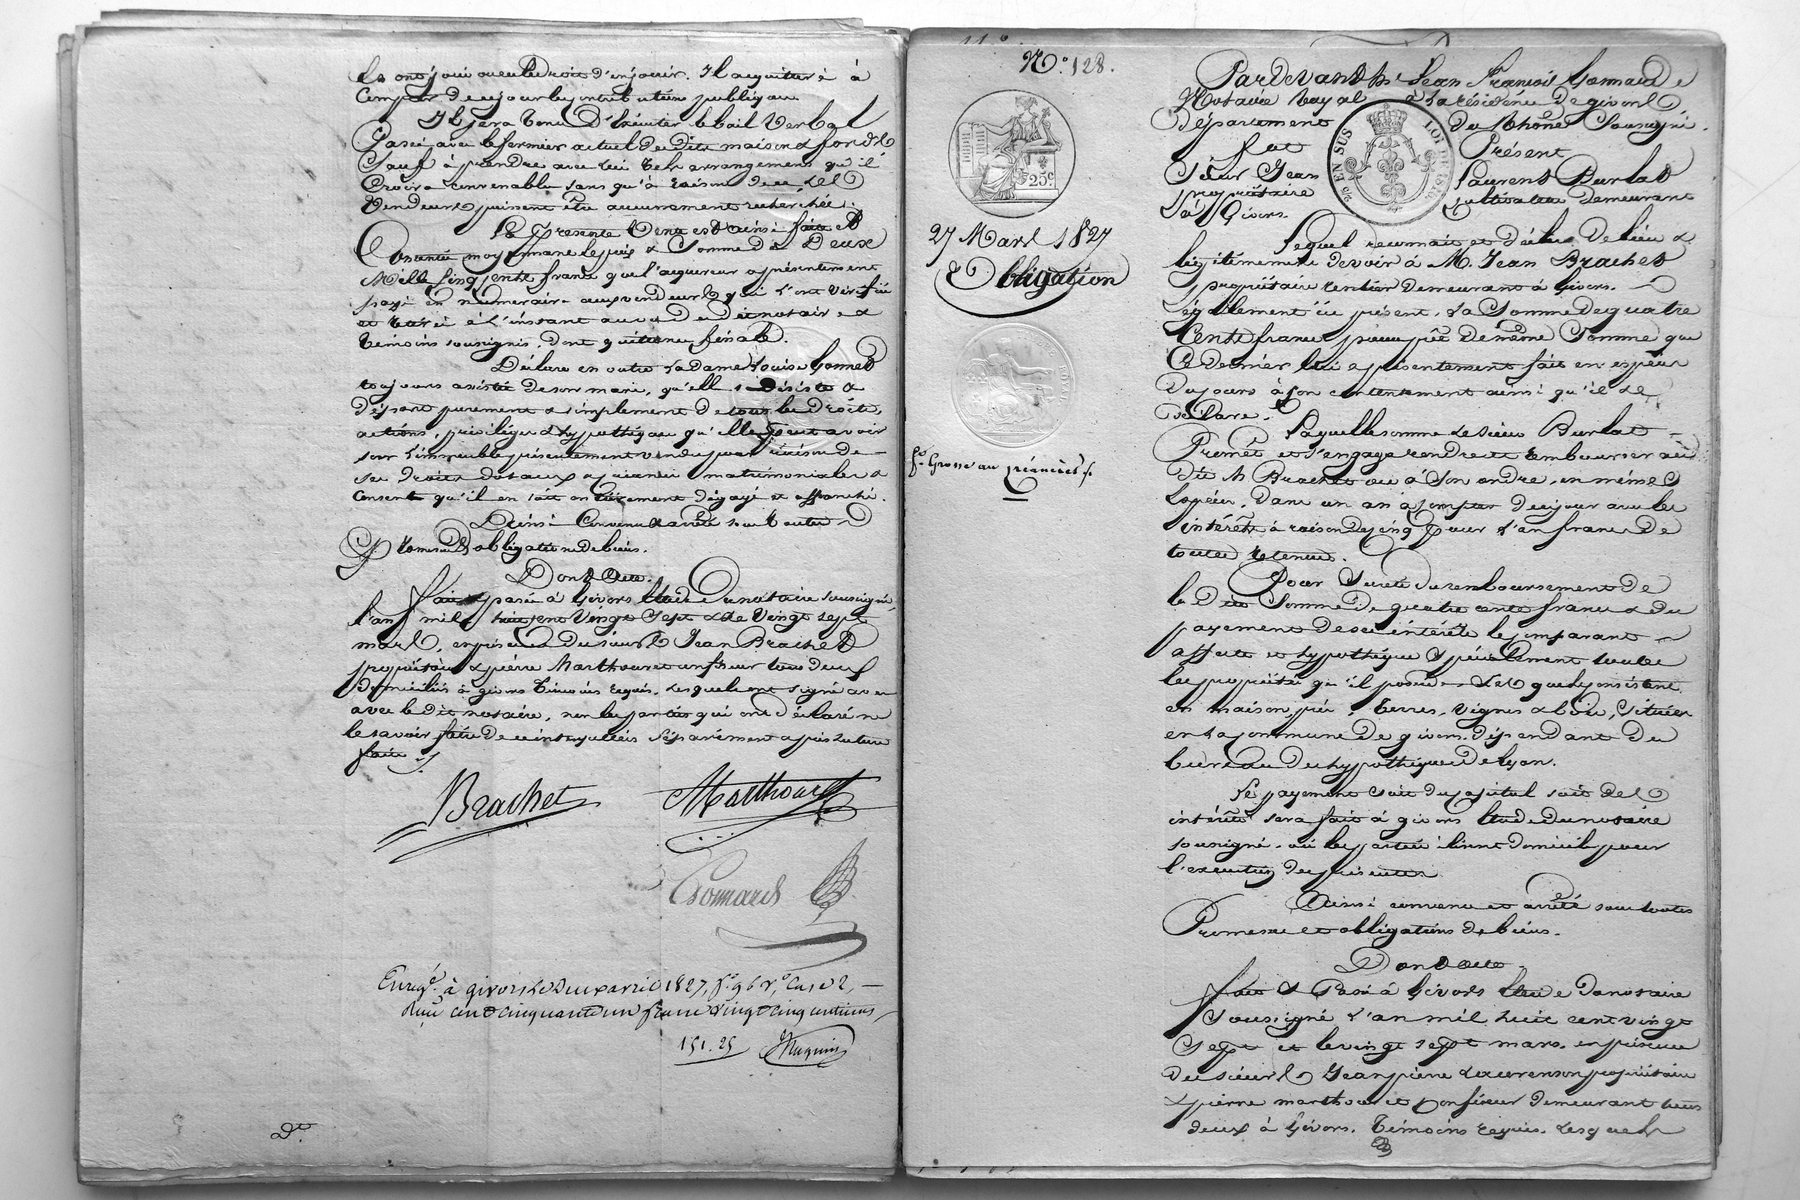 les ont joui ou eu le droit d'en jouir. Il acquittera à
compter de ce jour les contributions publiques
Il sera tenu d'exécuter le bail verbal
Passé avec le fermier actuel desdits maison & fonds
Sauf à prendre avec lui tels arrangements qu'il
Croira convenable sans qu'à raison de ce, les
Vendeurs puissent être aucunement recherchés.
La présente vente est ainsi faite &
Consentie moyennant le prix & Somme de Deux
Mille Cinq cents francs que l'acquéreur a présentement
payé en numéraire aux vendeurs qui l'ont vérifié
et retiré à l'instant au vu du dit notaire &
témoins soussignés. Dont quittance finale.
Déclare en outre la dame Louise Gonnet
toujours assistée de son mari, qu'elle se désiste &
départ purement & simplement de tous les droits,
actions, privilèges & hypothèques qu'elle peut avoir
sur l'immeuble présentement vendu pour raison de
ses droits dotaux avantages matrimoniales &
Consent qu'il en soit entièrement dégagé et affranchi.
D'ainsi Convenu & arrêté sous toutes
Promesses & obligations de biens.
Dont Acte.
Fait & passé à Givors Etude du notaire soussigné,
l'an mil huit cent vingt sept & le vingt sept
mars, en présence des sieurs Jean Brachet
propriétaire & pierre Marthouret confiseur tous deux
Domiciliés à givors témoins requis, lesquels ont signé
avec le dit notaire, non les parties qui ont déclaré ne
le savoir faire de ce interpellées séparément après lecture
faite ./.
Brachet Marthouret
Bonnard
Enregé. à givors le deux avril 1827, fo. 96 vo, Case 2,
Reçu cent cinquante un francs vingt cinq centimes
151. 25
Dt.
No. 128.
25 c.
27 Mars 1827
Obligation
fe. Grosse au créancier ./.
Pardevant Me Jean François Bonnard
Notaire royal à la résidence de givors
Département du Rhône Soussigné.
Fut Présent
Sieur Jean Laurent Burlat
propriétaire Cultivateur demeurant
à Givors.
EN SUS LOI DE 1816
Lequel reconnait et déclare devoir &
légitimement devoir à M. Jean Brachet
propriétaire rentier demeurant à Givors.
également ici présent, La Somme de quatre
Cents francs pour prêt de même Somme que
Ce dernier lui a présentement fait en espèces
Du cours à son contentement ainsi qu'il le
Déclare.
Laquelle somme Le sieur Burlat
Promet et s'engage rendre et rembourser au
Dit M Brachet ou à Son ordre, en mêmes
Espèces, Dans un an à compter de ce jour avec les
intérêts à raison de cinq pour cent l'an francs de
toutes retenues.
Pour Sureté du remboursement de
la dite Somme De quatre cents francs & du
payement de ses intérêts le comparant
affecte et hypothèque Spécialement toutes
les propriétés qu'il possède & lesquelles consistent
en maison, pré, terres, vignes & bois, Situées
en la commune de givors, dépendant du
bureau des hypothèques de Lyon.
Le payement soit du capital soit des
intérêts sera fait à givors Etude du notaire
soussigné où les parties élisent domicile pour
l'exécution des présentes.
Ainsi convenu et arrêté sous toutes
Promesses et obligations de biens.
Dont acte.
Fait & Passé à Givors Etude du notaire
Soussigné l'an mil huit cent vingt
Sept et le vingt sept mars. en présence
Des sieurs Jean pierre propriétaire
& pierre marthouret confiseur demeurant tous
deux à Givors. témoins requis. lesquels